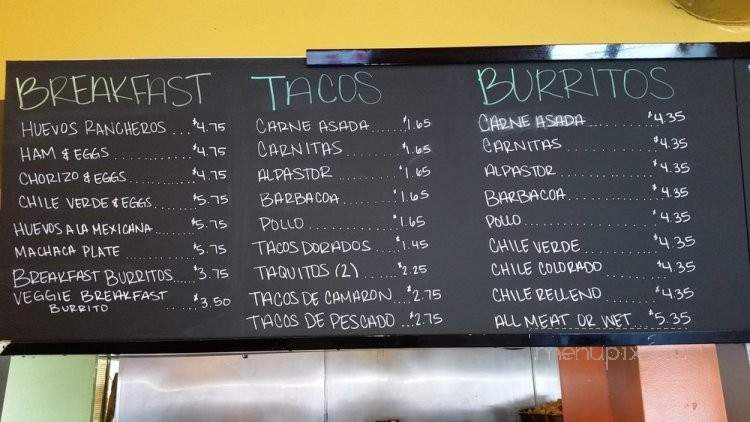 BREAKFAST
HUEVOS RANCHEROS ... $4.75
HAM & EGGS ... $4.75
CHORIZO & EGGS ... $4.75
CHILE VERDE & EGGS ... $5.75
HUEVOS A LA MEXICANA ... $5.75
MACHACA PLATE ... $5.75
BREAKFAST BURRITOS ... $3.75
VEGGIE BREAKFAST
BURRITO ... $3.50
TACOS
CARNE ASADA ... $1.65
CARNITAS ... $1.65
ALPASTOR ... $1.65
BARBACOA ... $1.65
POLLO ... $1.65
TACOS DORADOS ... $1.45
TAQUITOS (2) ... $2.25
TACOS DE CAMARON ... $2.75
TACOS DE PESCADO ... $2.75
BURRITOS
CARNE ASADA ... $4.35
CARNITAS ... $4.35
ALPASTOR ... $4.35
BARBACOA ... $4.35
POLLO ... $4.35
CHILE VERDE ... $4.35
CHILE COLORADO ... $4.35
CHILE RELLENO ... $4.35
ALL MEAT OR WET ... $5.35